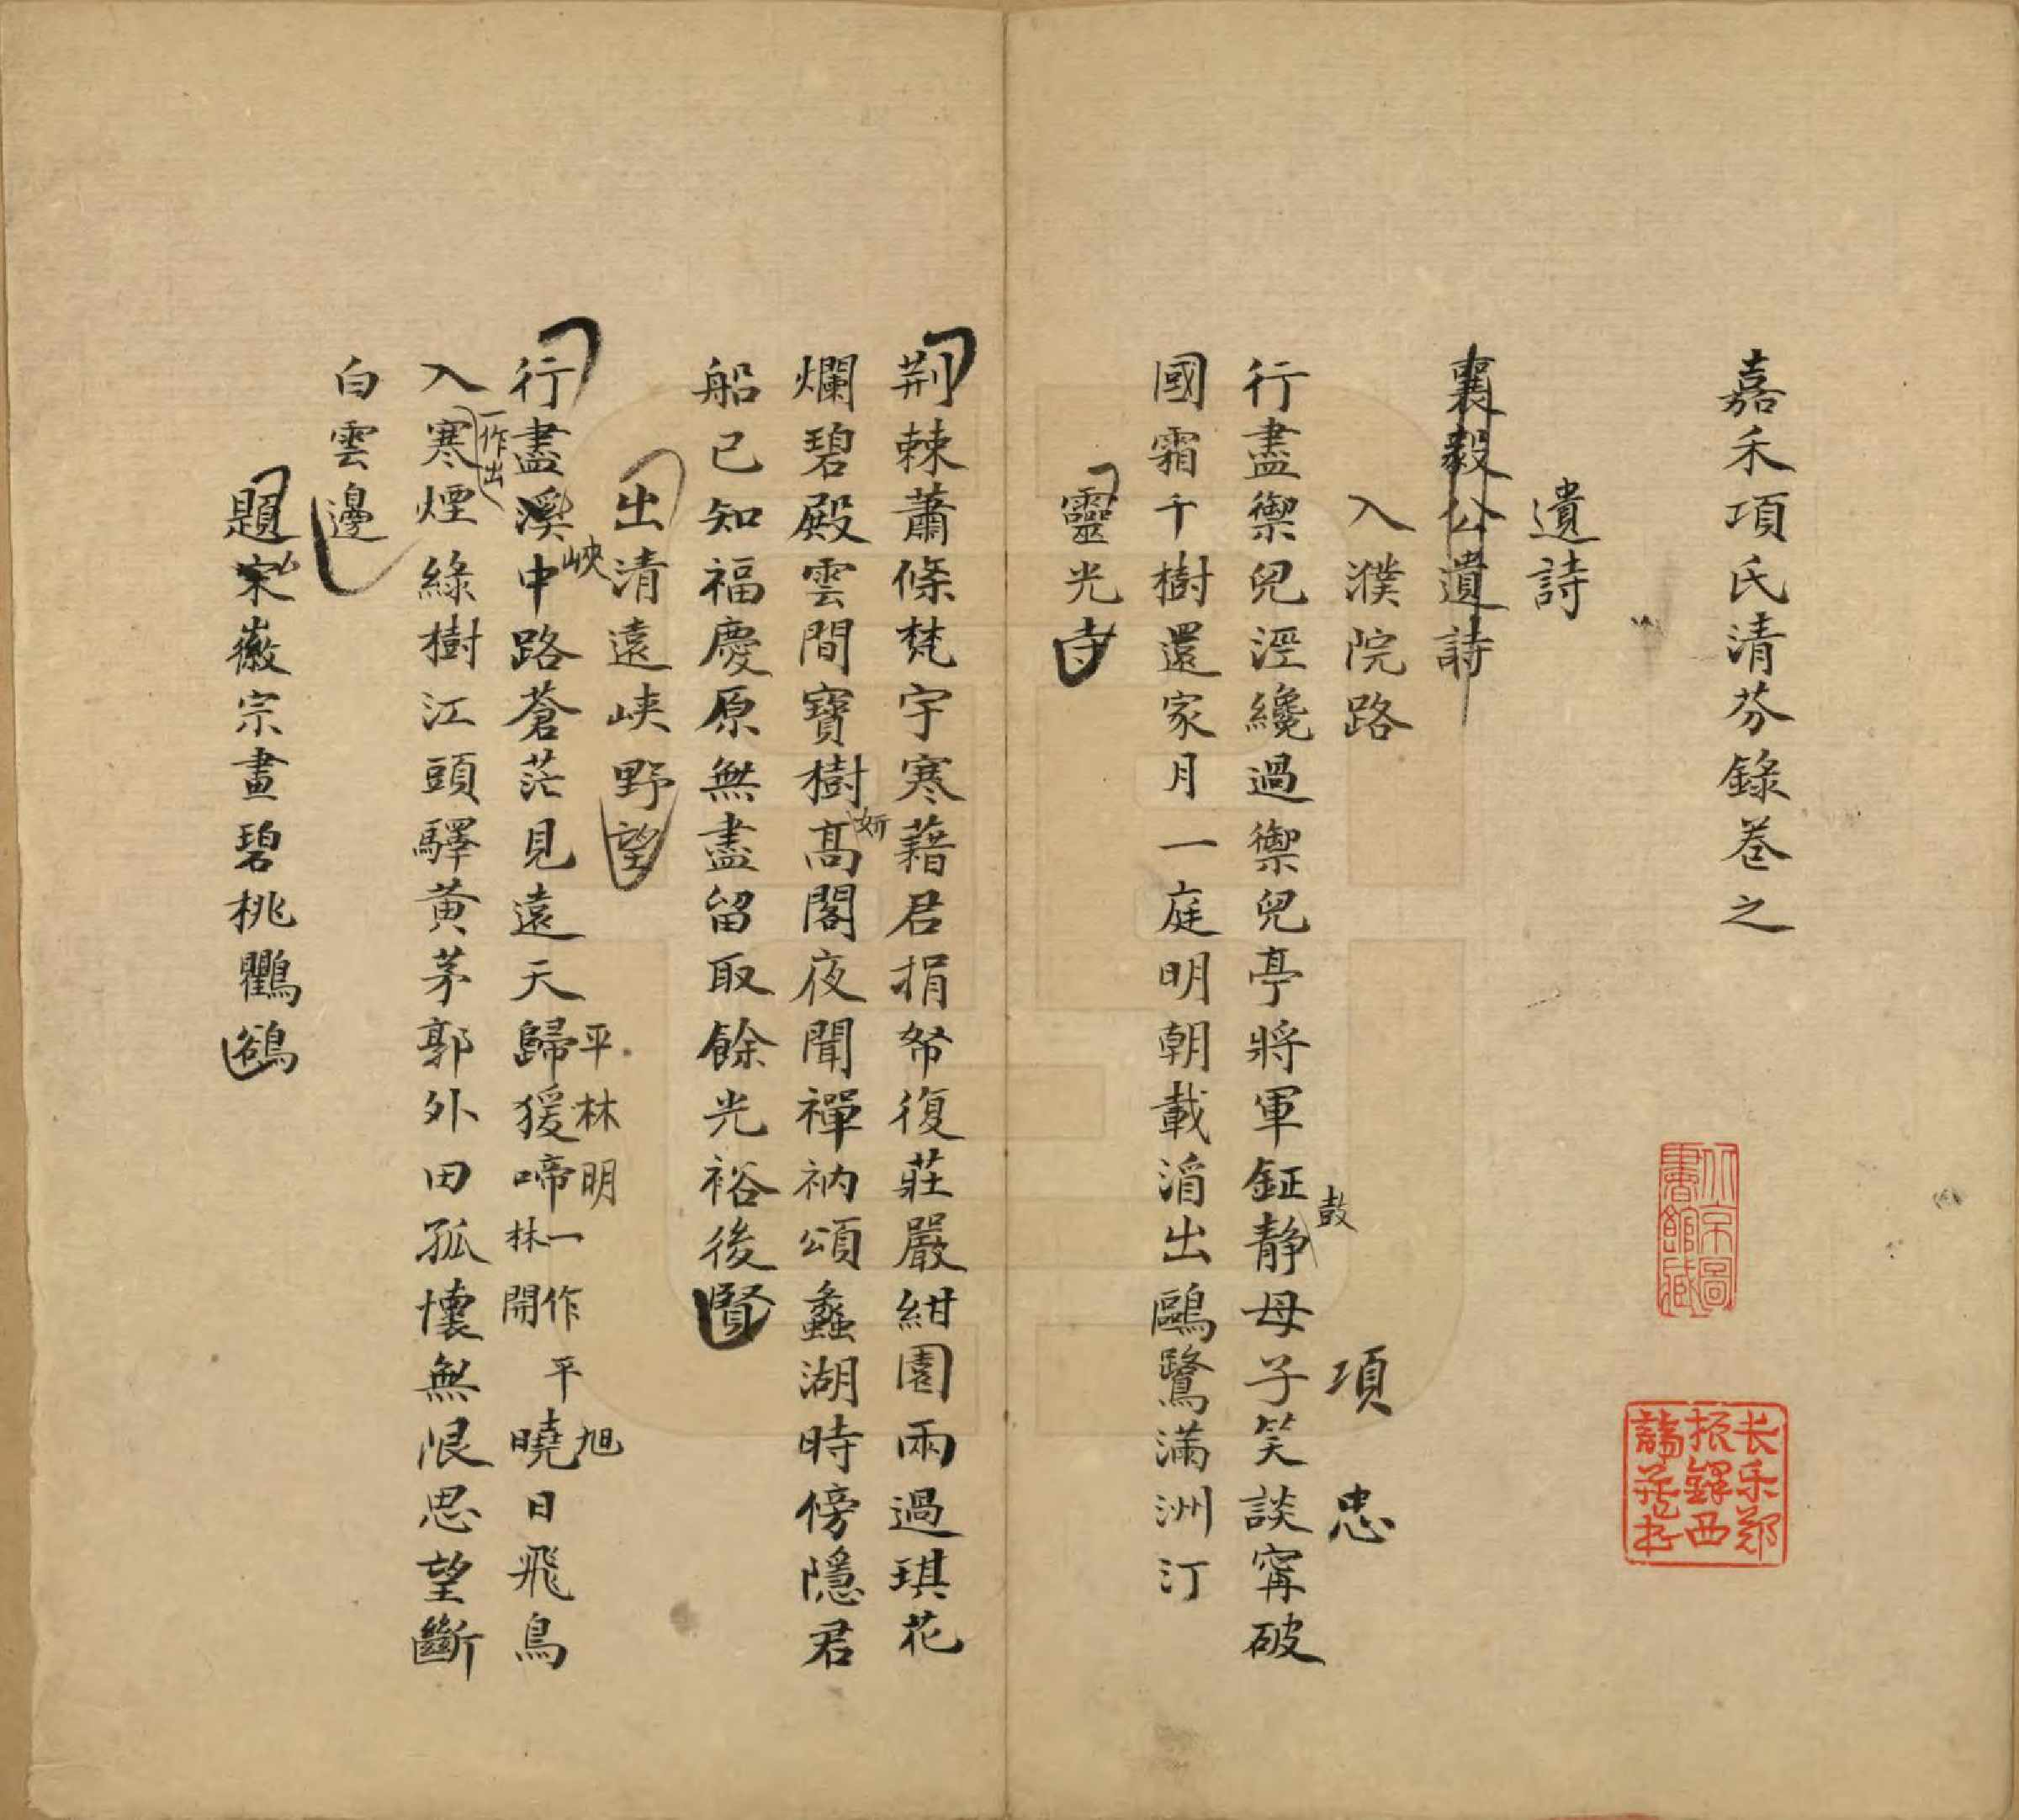 嘉禾項氏清芬錄卷之
遺詩
襄毅公遺詩
入濮院路
項忠
行盡禦兒涇纔過禦兒亭將軍鉦静母子笑談甯破
鼓
國霜千樹還家月一庭明朝載酒出鷗鷺滿洲汀
靈光寺
荆棘蕭條梵宇寒藉君捐帑復莊嚴紺園雨過琪花
爛碧殿雲間寶樹髙閣夜聞禪衲頌蠡湖時傍隱君
船已知福慶原無盡留取餘光裕後賢
出清遠峽野望
行盡溪中路蒼茫見遠天歸猨啼林一作開平曉日飛鳥
峽
平林明
旭
入寒煙綠樹江頭驛黄茅郭外田孤懷無限思望斷
一作出
白雲邊
題宋徽宗畫碧桃鸜鵒
北京圖書館藏
长乐郑振铎西諦藏书